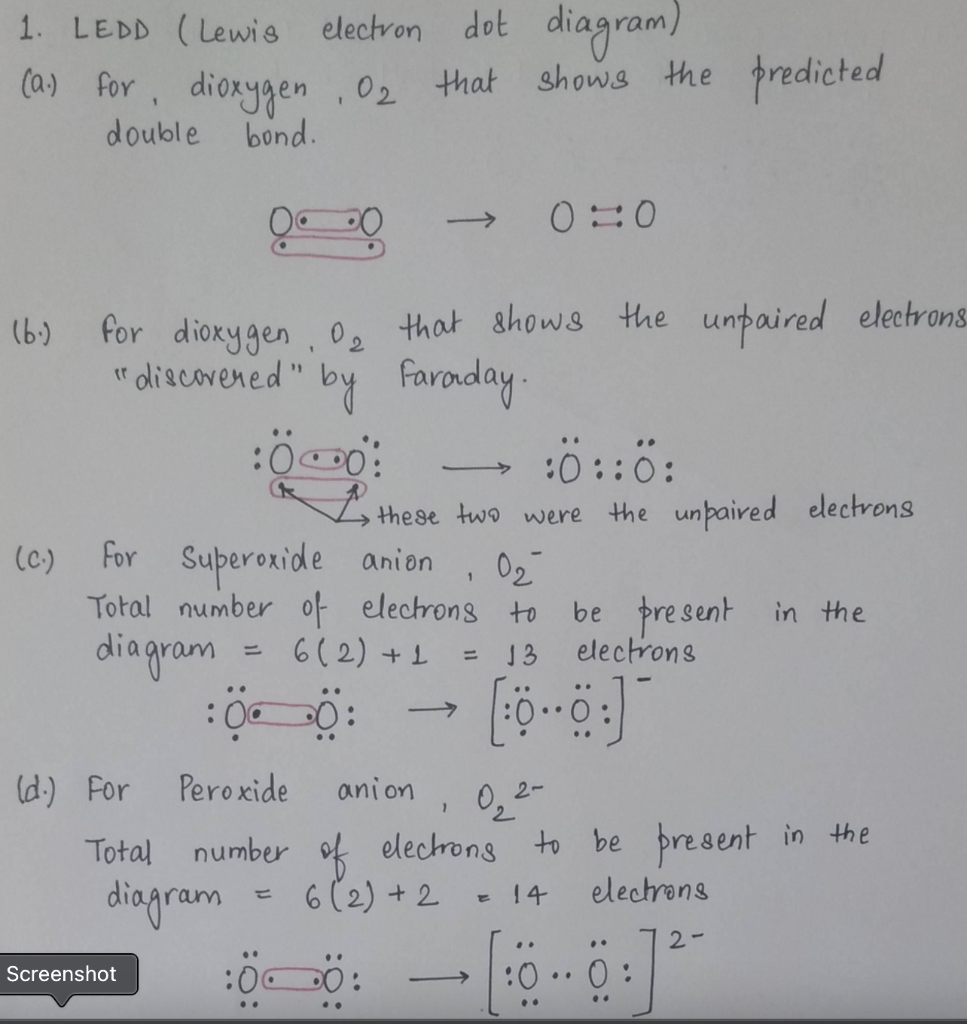 1. LEDD (Lewis electron dot diagram)
(a.) for, dioxygen, O₂ that shows the predicted
double bond.
O··O → O=O
(b.) for dioxygen, O₂ that shows the unpaired electrons
"discovered" by Faraday.
:Ö··Ö: → :Ö::Ö:
→ these two were the unpaired electrons
(c.) for Superoxide anion, O₂⁻
Total number of electrons to be present in the
diagram = 6(2) + 1 = 13 electrons
:Ö··Ö: → [:Ö··Ö:]⁻
(d.) For Peroxide anion, O₂²⁻
Total number of electrons to be present in the
diagram = 6(2) + 2 = 14 electrons
:Ö··Ö: → [:Ö··Ö:]²⁻
Screenshot